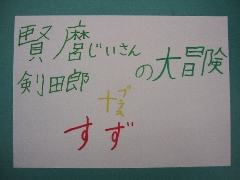 賢麿じいさん
剣田郎
の大冒険
プラス
＋
すず